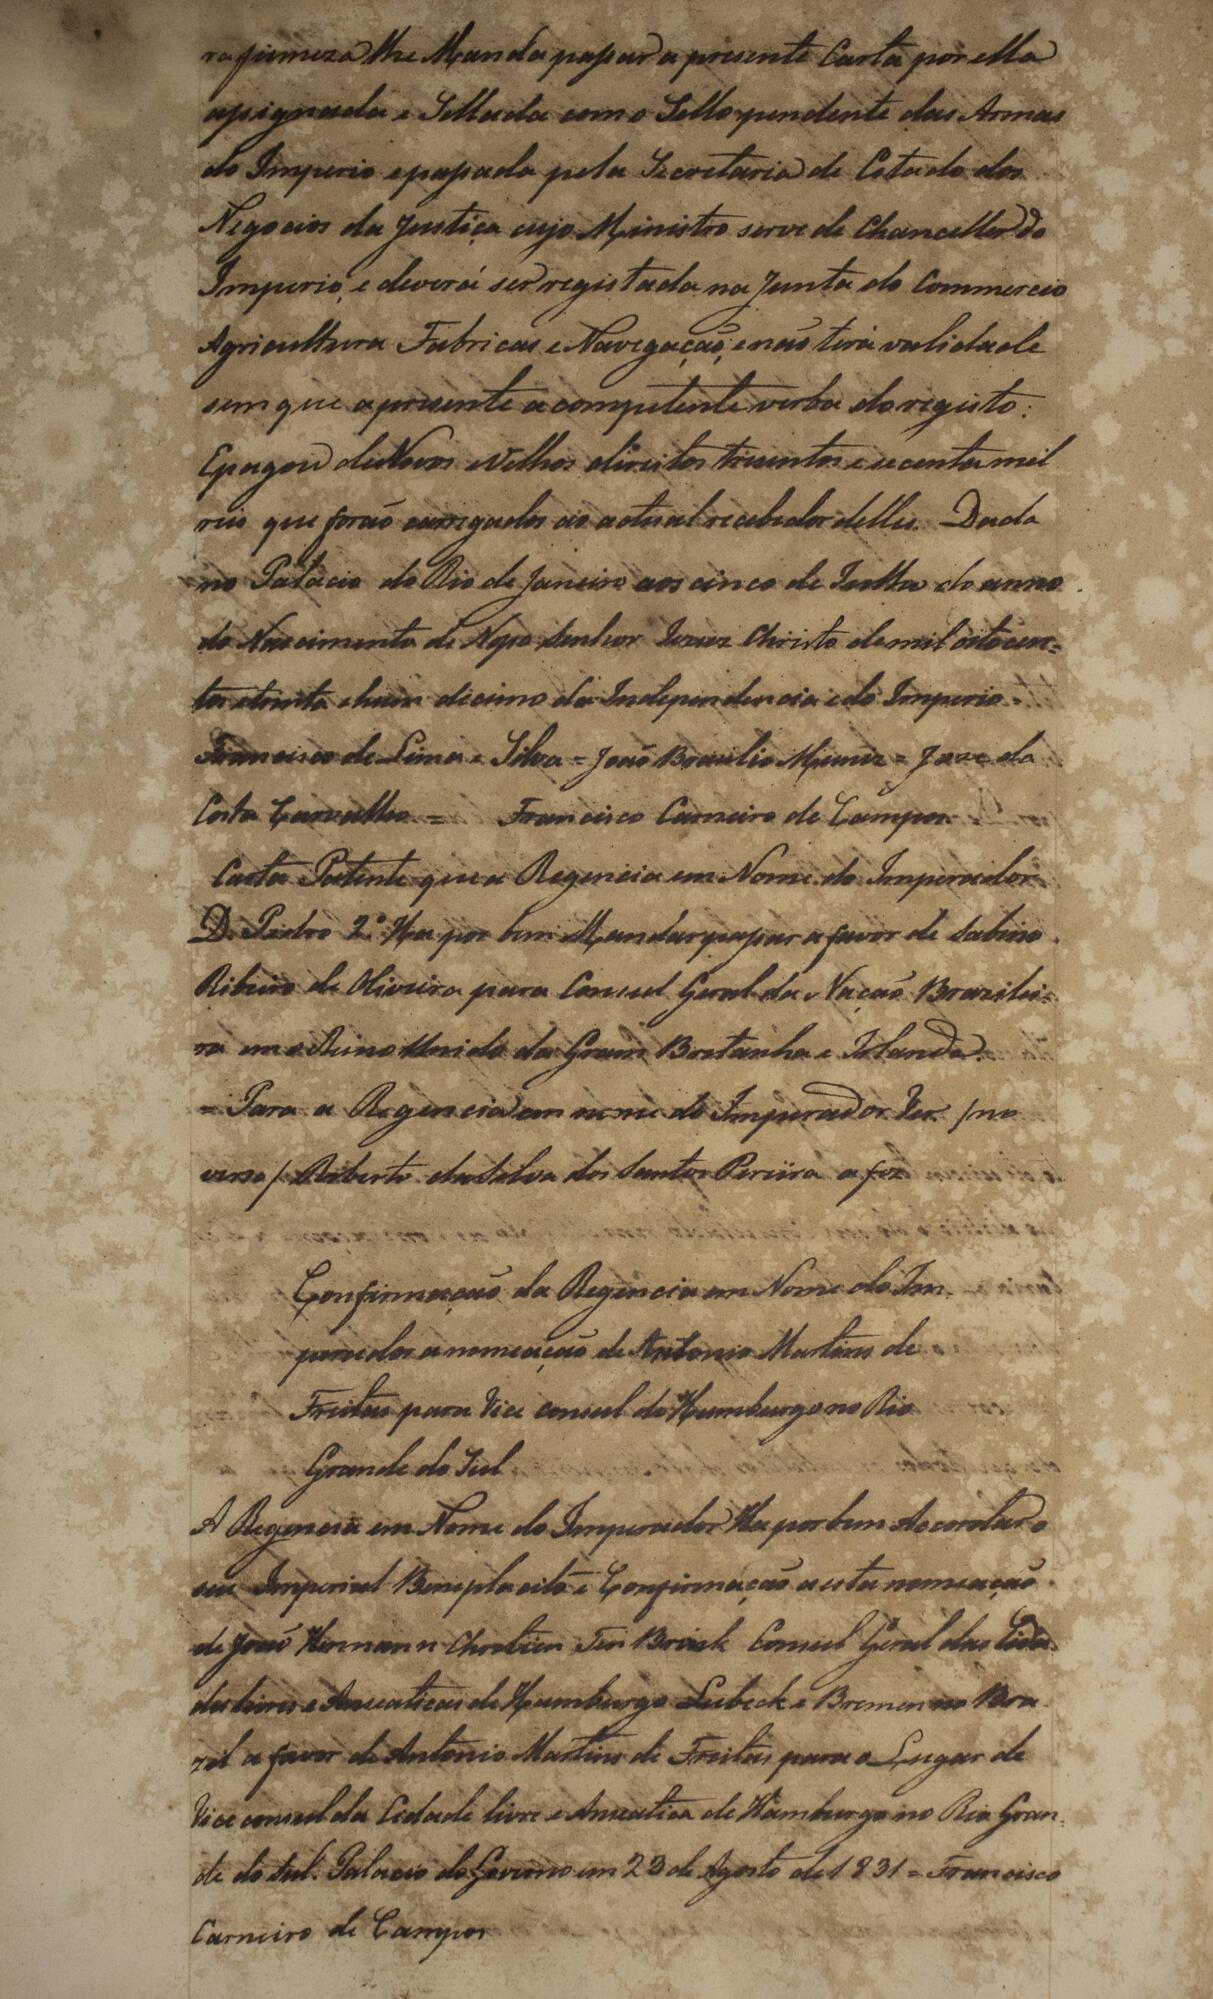 ra firmeza lhe Manda passar a presente Carta por ella
assignada e Sellada com o Sello pendente das Armas
do Imperio e passada pela Secretaria de Estado dos
Negocios da Justiça cujo Ministro serve de Chanceller do
Imperio, e deverá ser registada na Junta do Commercio
Agricultura Fabricas e Navegação, e não terá validade
sem que apresente a competente verba do registo:
E pagou de Novos e Velhos direitos trezentos e secenta mil
reis que forão carregados ao actual recebedor delles. Dada
no Palacio do Rio de Janeiro aos cinco de Julho do anno
do Nascimento de Nosso Senhor Jezuz Christo de mil oitocen-
tos e trinta e hum decimo da Independencia e do Imperio =
Francisco de Lima e Silva = João Braulio Muniz = Joze da
Costa Carvalho = Francisco Carneiro de Campos
Carta Patente que a Regencia em Nome do Imperador
D. Pedro 2º Ha por bem Mandar passar a favor de Sabino
Ribeiro de Oliveira para Consul Geral da Nação Brazilei-
ra em o Reino Unido da Gram Bretanha e Irlanda
= Para a Regencia em nome do Imperador Ver. /no
verso/ Roberto da Silva dos Santos Pereira a fez
Confirmação da Regencia em Nome do Im
perador a nomeação de Antonio Martins de
Freitas para Vice consul de Hamburgo no Rio
Grande do Sul
A Regencia em Nome do Imperador Ha por bem Accordar o
seu Imperial Beneplacito e Confirmação a esta nomeação
de João Hermann Ten Brink Consul Geral das Cida
des livres e Anseaticas de Hamburgo Lubeck e Bremen no Bra
zil a favor de Antonio Martins de Freitas para o Lugar de
Vice consul da Cidade livre e Anseatica de Hamburgo no Rio Gran
de do Sul. Palacio do Governo em 23 de Agosto de 1831 = Francisco
Carneiro de Campos